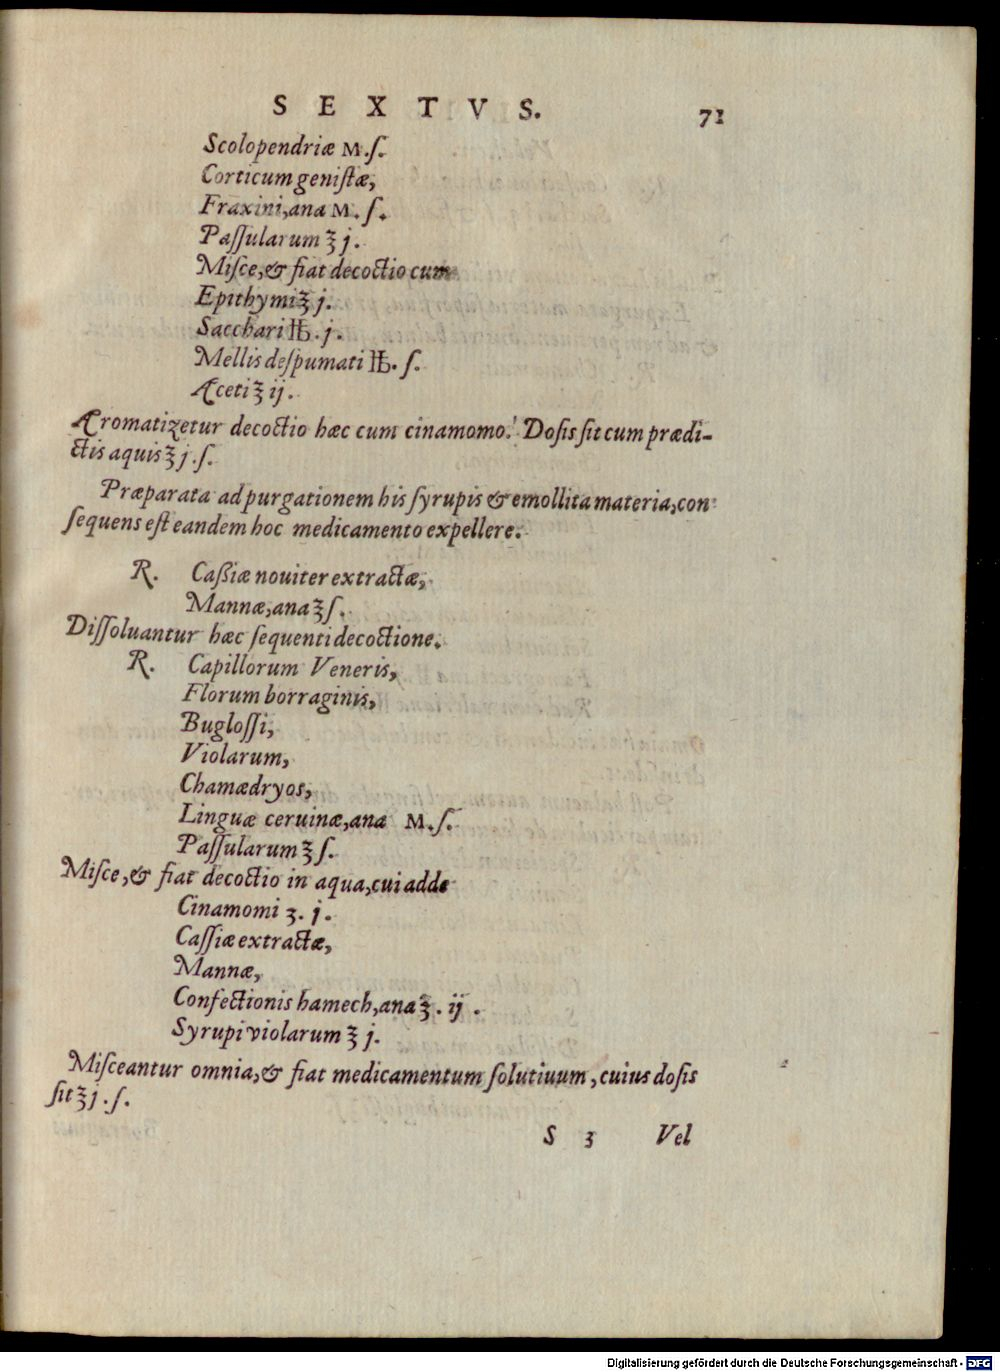 SEXTVS. 71
Scolopendriæ M.ſ.
Corticum geniſtæ,
Fraxini, ana M. ſ.
Paſſularum ℥ j.
Miſce, & fiat decoctio cum
Epithymi ℥ j.
Sacchari ℔. j.
Mellis deſpumati ℔. ſ.
Aceti ℥ ij.
Aromatizetur decoctio hæc cum cinamomo. Doſis ſit cum prædi-
ctis aquis ℥ j. ſ.
Præparata ad purgationem his ſyrupis & emollita materia, con
ſequens eſt eandem hoc medicamento expellere.
R. Caßiæ nouiter extractæ,
Mannæ, ana ℥ ſ.
Diſſoluantur hæc ſequenti decoctione.
R. Capillorum Veneris,
Florum borraginis,
Bugloſſi,
Violarum,
Chamædryos,
Linguæ ceruinæ, ana M. ſ.
Paſſularum ℥ ſ.
Miſce, & fiat decoctio in aqua, cui adde
Cinamomi ʒ. j.
Caſſiæ extractæ,
Mannæ,
Confectionis hamech, ana ℥. ij.
Syrupi violarum ℥ j.
Miſceantur omnia, & fiat medicamentum ſolutiuum, cuius doſis
ſit ℥ j. ſ.
S 3 Vel
Digitalisierung gefördert durch die Deutsche Forschungsgemeinschaft - DFG